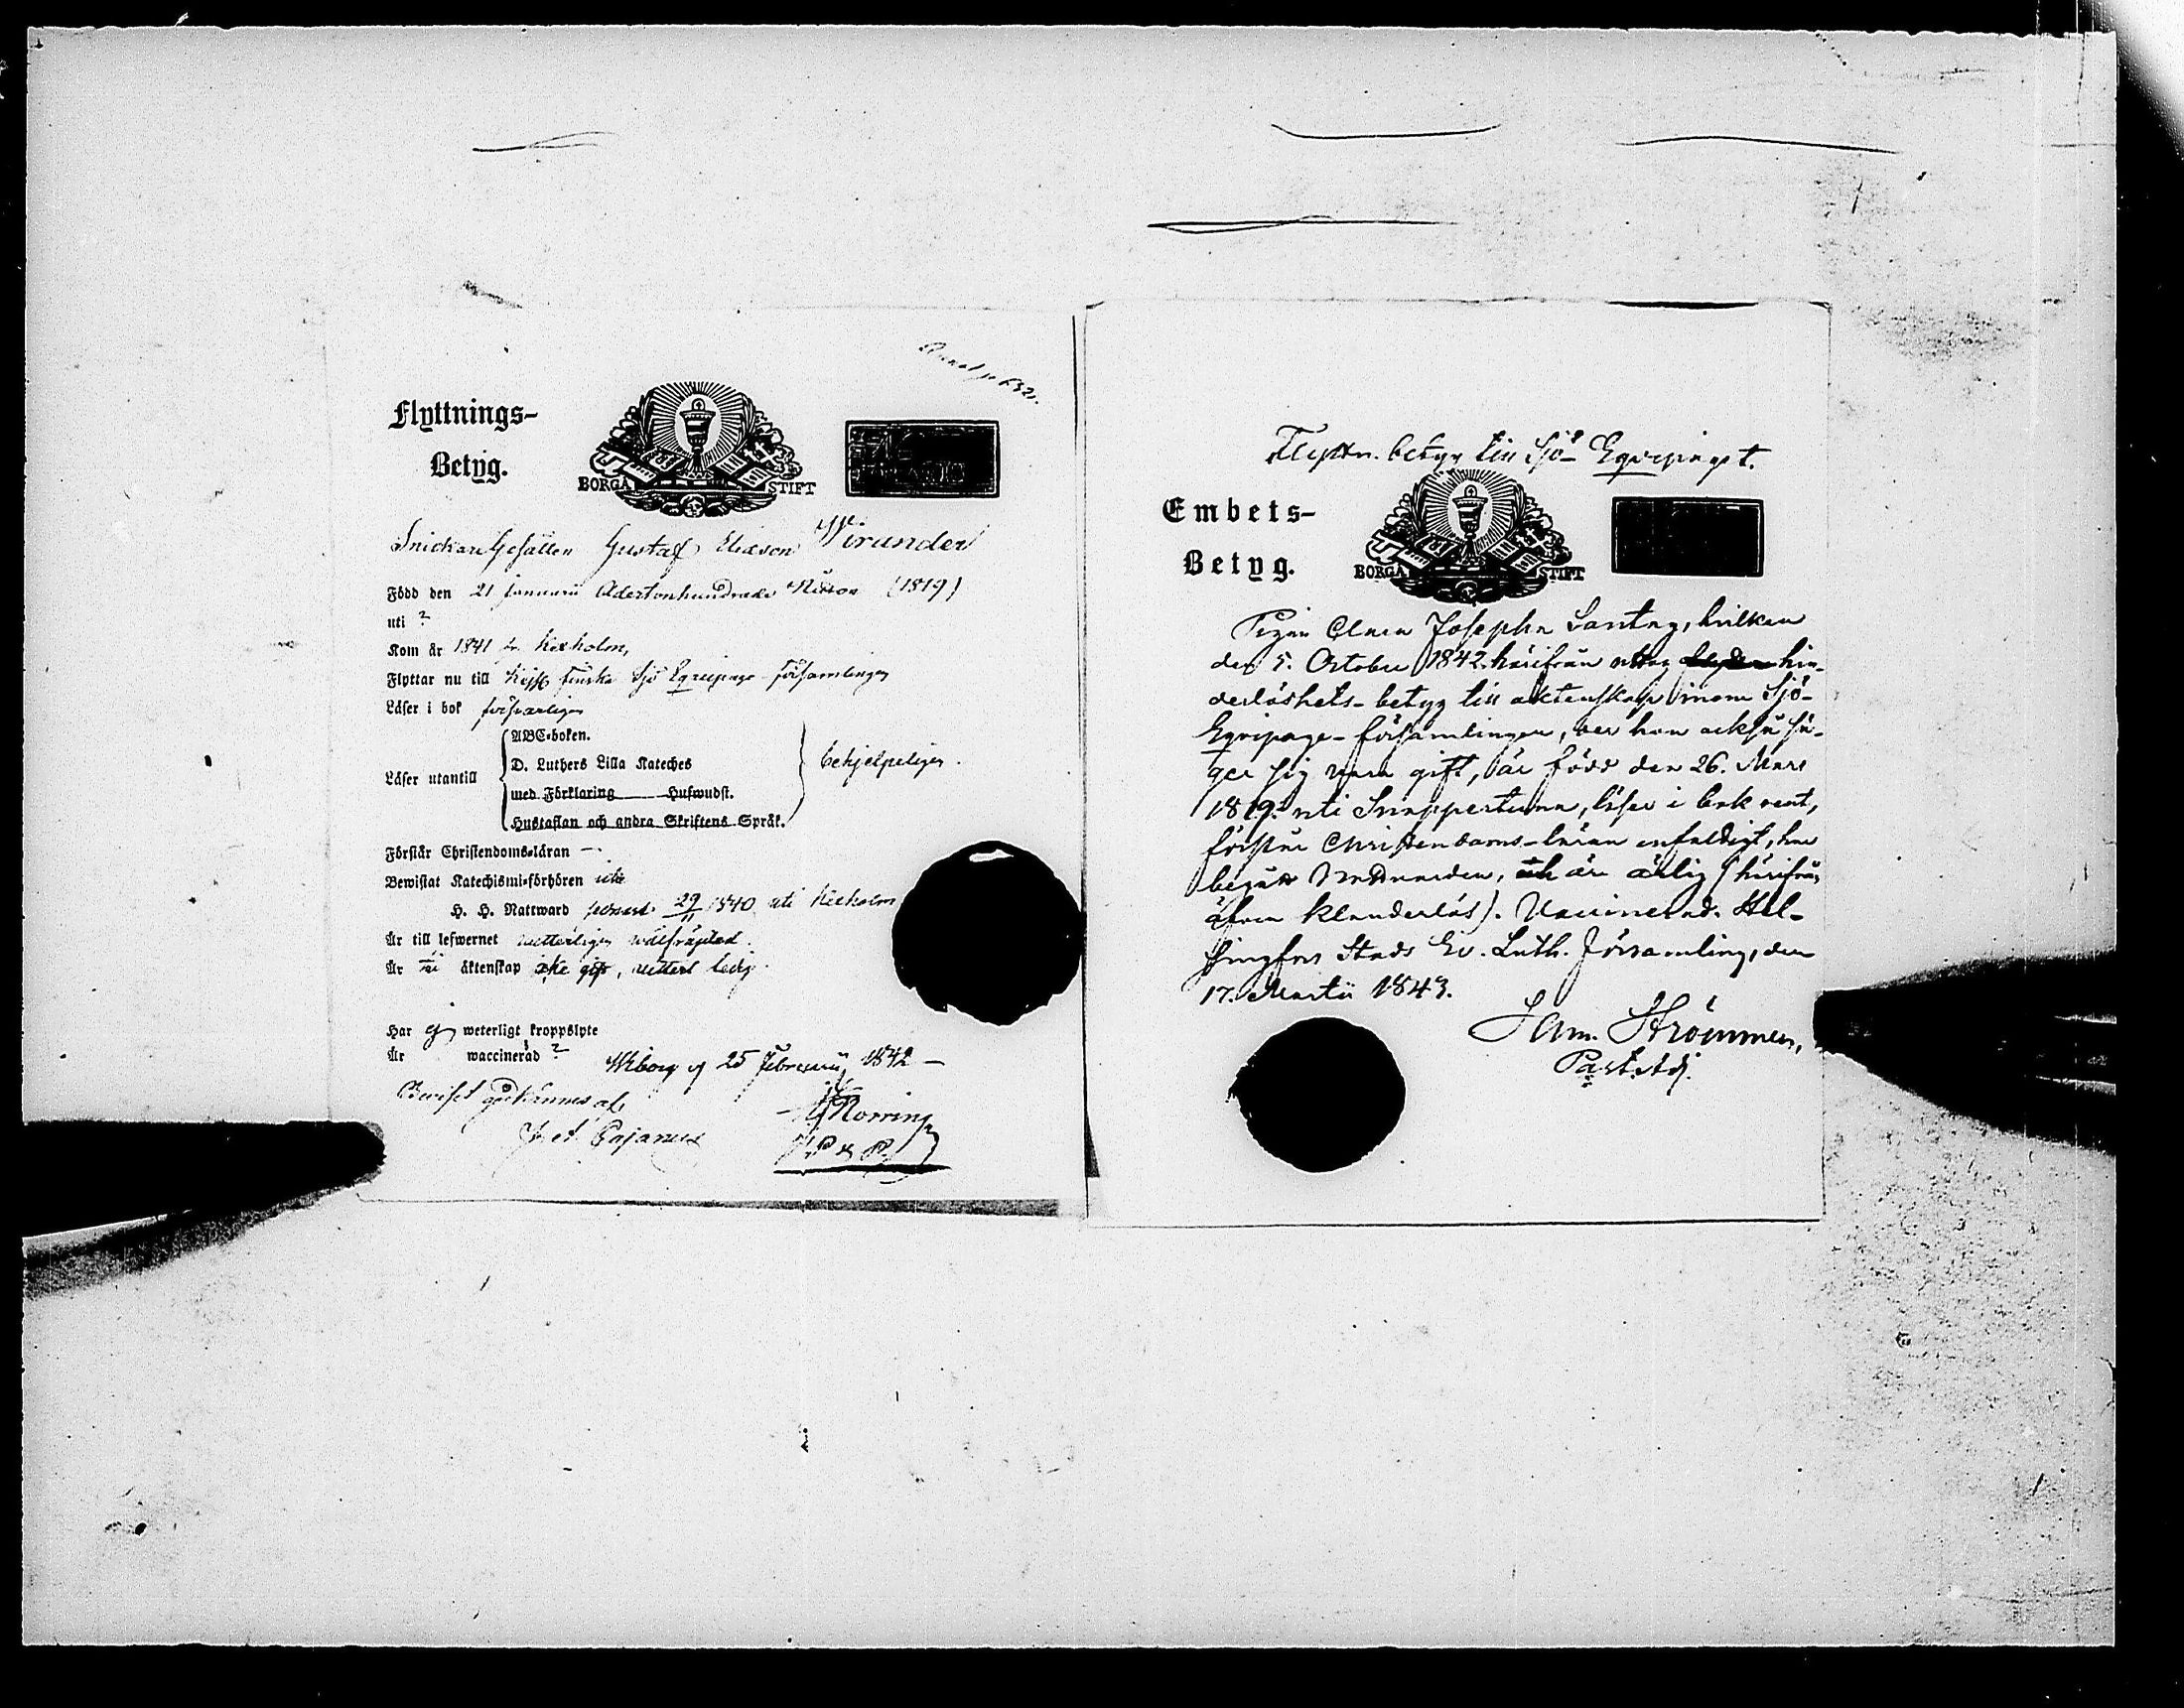 Flyttnings-
Betyg.
BORGÅ STIFT
Snickare Gesällen Gustaf Eliæson Wirunder
Född den 21 januarii Adertonhundrade Nitton (1819)
uti ?
Kom år 1841 fr. Kexholm,
Flyttar nu till Kejs finska Sjö Equipage-församlingen
Läser i bok försvarligen
Läser utantill
ABC-boken.
D. Luthers Lilla Kateches
med Förklaring Hufwudst.
Hustaflan och andra Skriftens Språk.
behjelpeligen.
Förstår Christendoms-läran —.
Bewistat Katechismi-förhören icke
H. H. Nattward senast 29/11 1840 uti Kexholm
Är till lefwernet wetterligen wälfräjdad.
Är till äktenskap icke gift, wetterl. ledig.
Har ej weterligt kroppslyte
Är waccinerad ?
Wiborg d 25 Februarii 1842 —
Beviset godkännes af,
Fred. Pajanus
Norring
Flyttn. betyg till Sjö-Equipaget.
Embets-
Betyg.
BORGÅ STIFT
Pigan Clara Josepha Santag, hvilken
den 5. October 1842. härifrån uttog hin-
derlöshets-betyg till äktenskap inom Sjö-
Equipage-församlingen, der hon också sä-
ger sig vara gift, är född den 26. Mars
1819. uti Snappertuna, läser i bok rent,
förstår Christendoms-läran enfaldigt, har
begått Nattvarden, och är ärlig (härifrån
äfven klanderlös). Vaccinerad. Hel-
singfors Stads Ev. Luth. Församling, den
17. Martii 1843.
Sam. Strömmer,
Past. Adj.